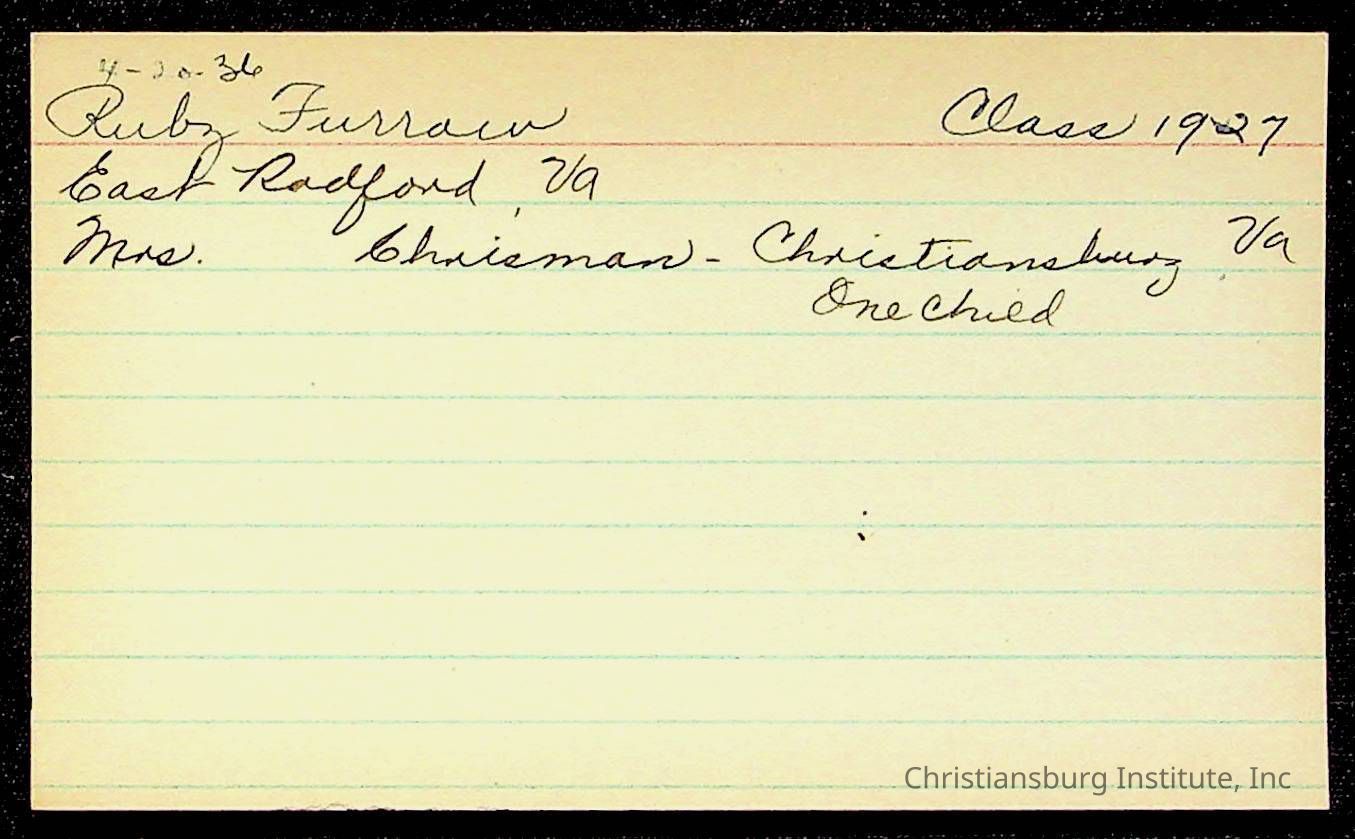 4-20-36
Ruby Furrow Class 1927
East Radford, Va
Mrs. Chrisman - Christiansburg, Va
One Child
Christiansburg Institute, Inc